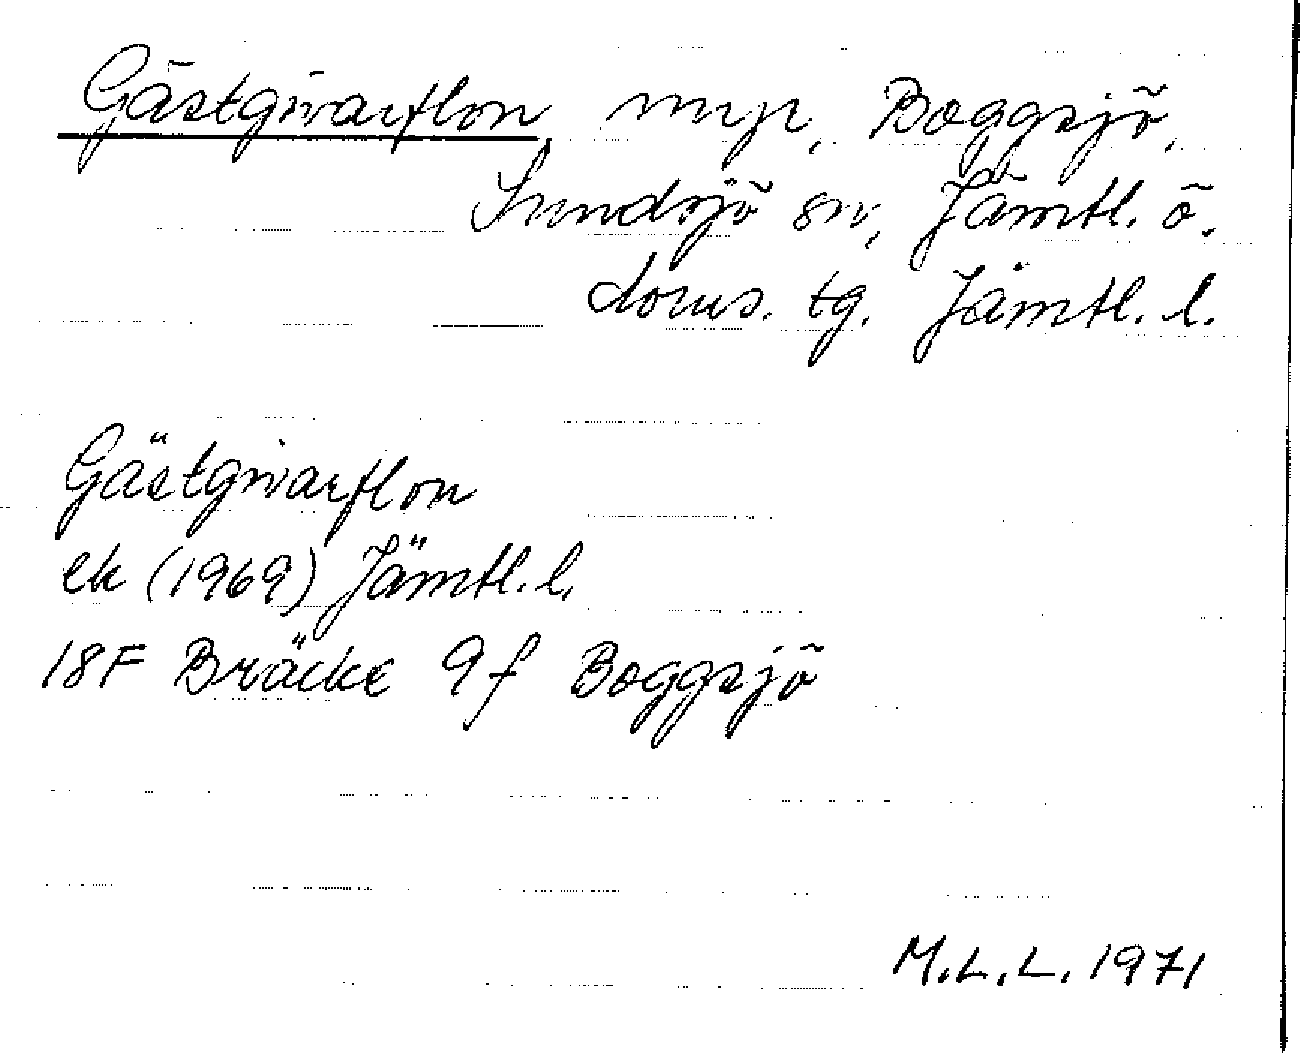 Gästgivarflon, myr, Boggsjö,
Sundsjö sn, Jämtl. ö.
doms. tg. Jämtl. l.
Gästgivarflon
ek (1969) Jämtl. l.
18F Bräcke 9f Boggsjö
M.L.L. 1971